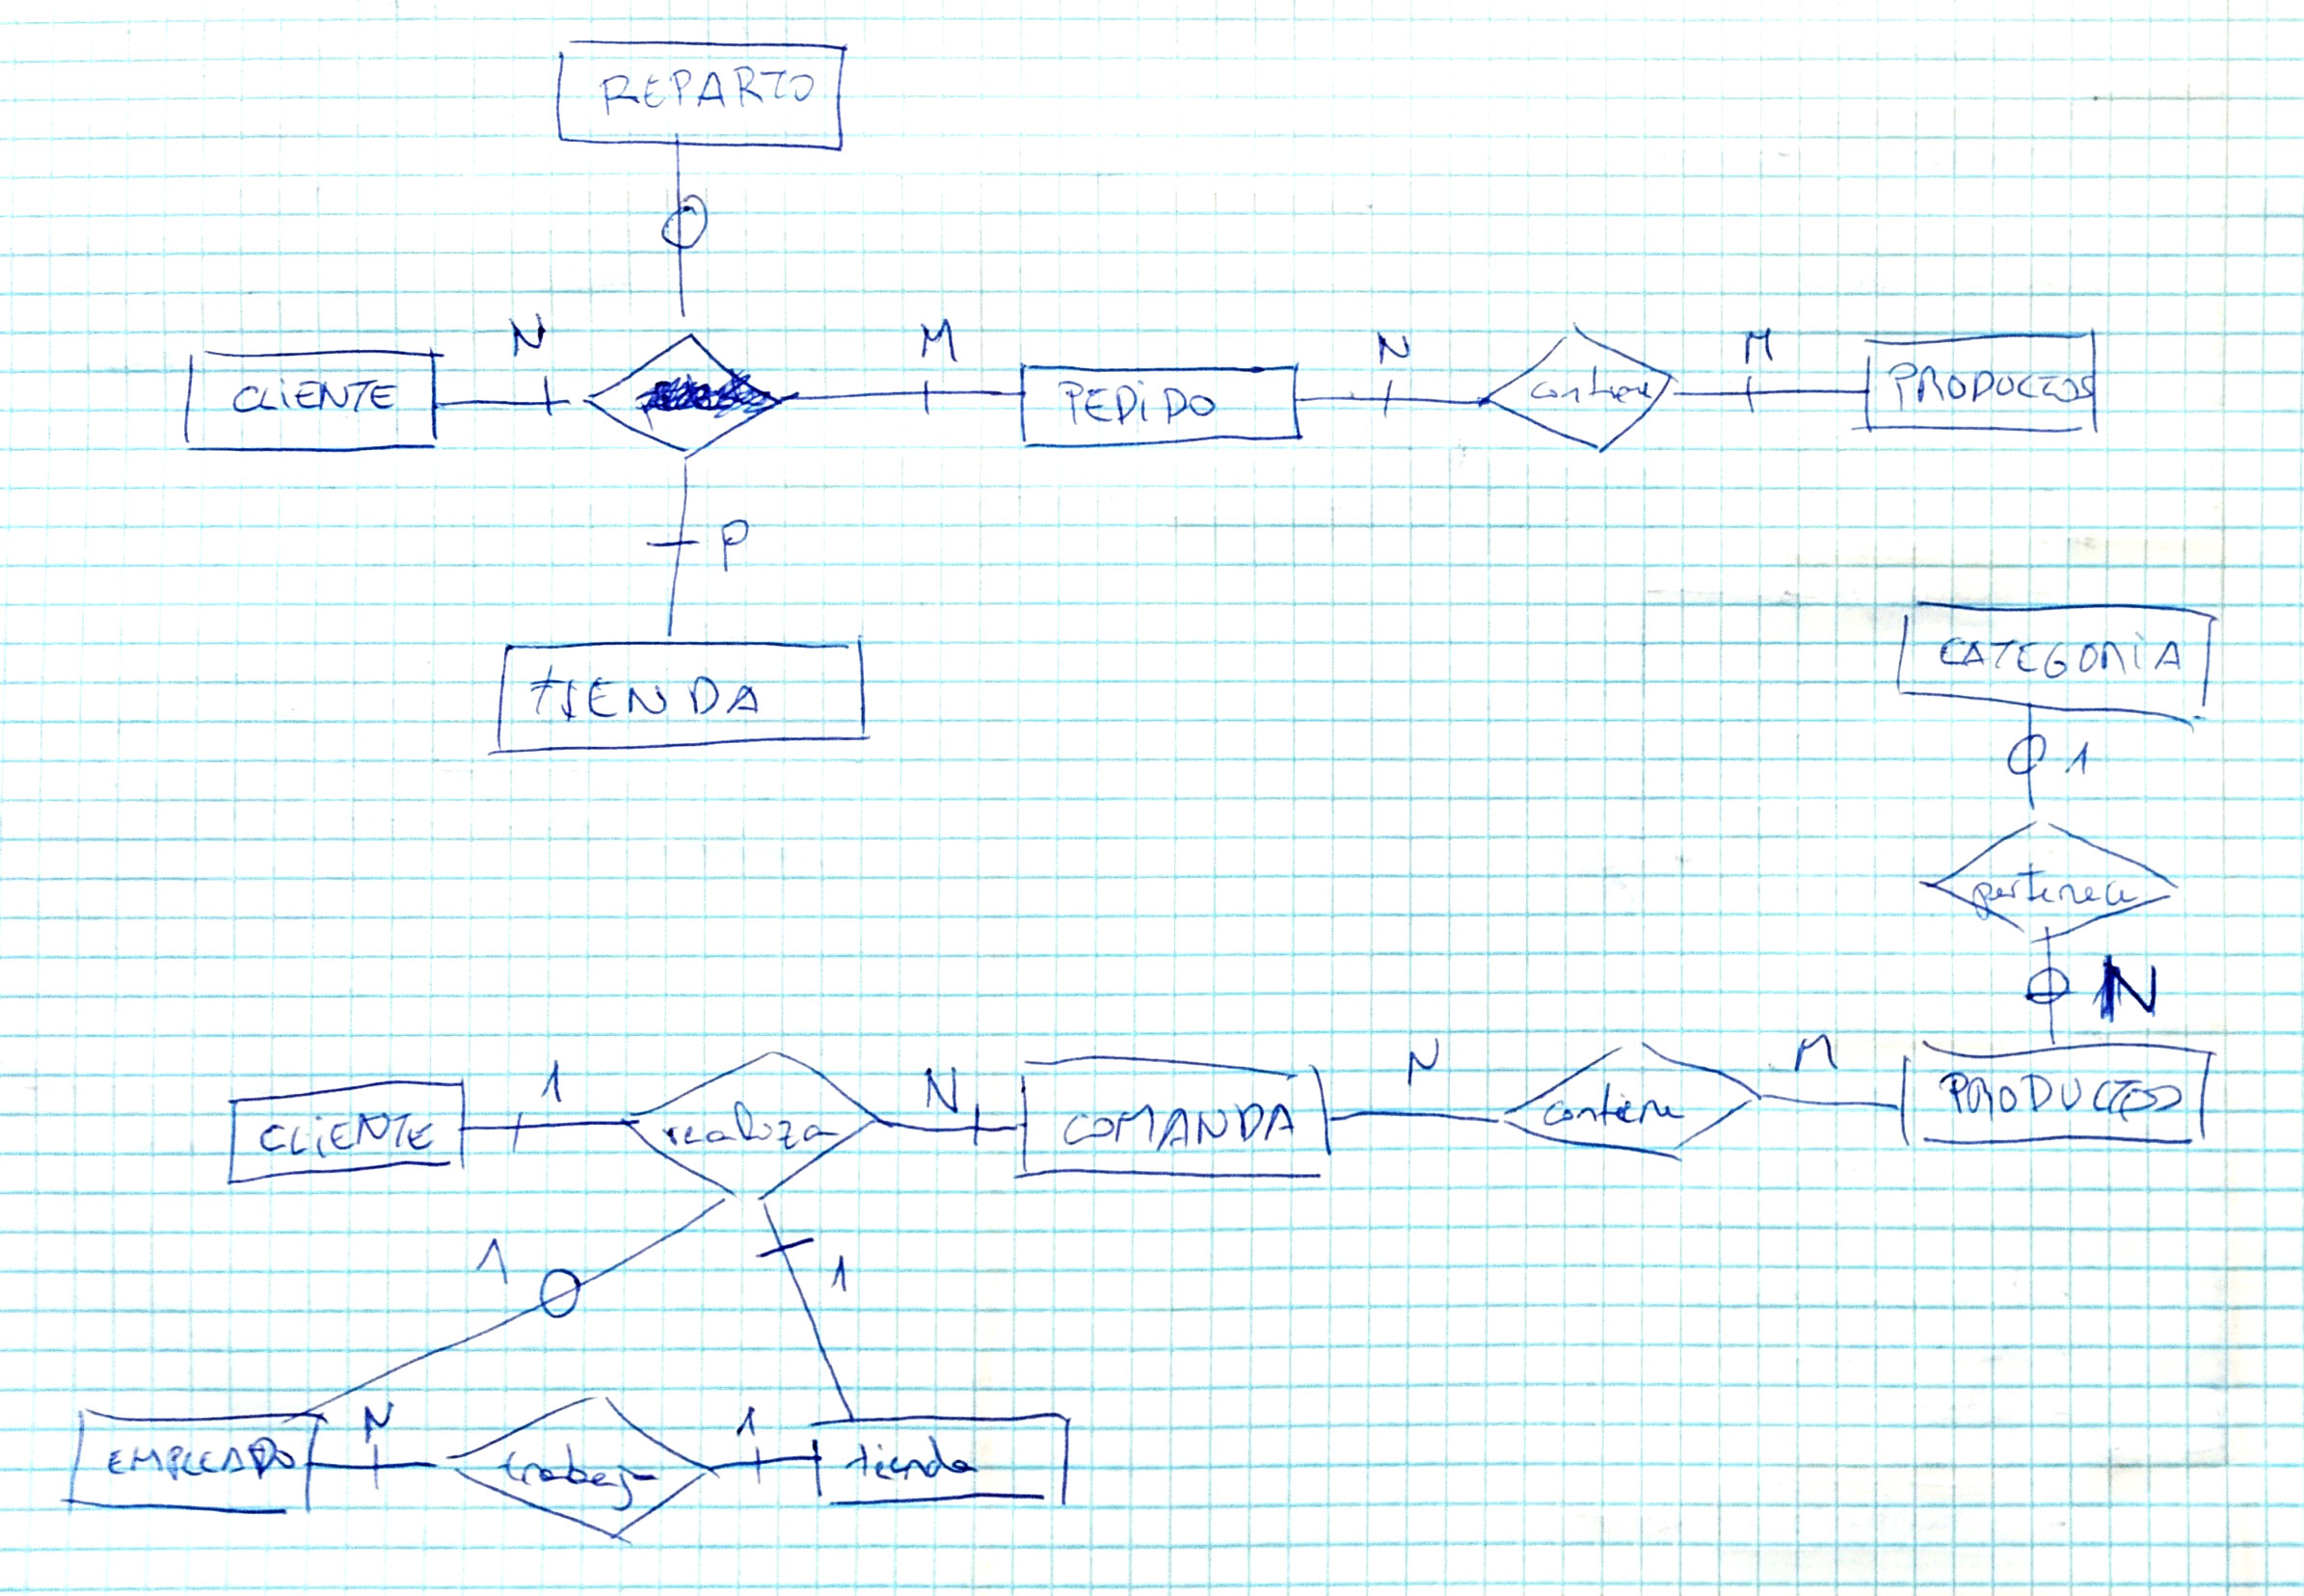 REPARTO
N M N M
CLIENTE PEDIDO contiene PRODUCTOS
P
TIENDA
CATEGORÍA
1
pertenece
N
1 N N M
CLIENTE realiza COMANDA contiene PRODUCTOS
1 1
N 1
EMPLEADO trabaja tienda